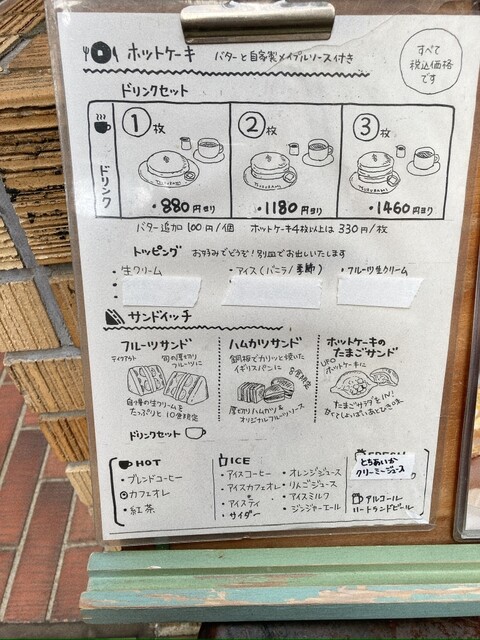 ホットケーキ バターと自家製メイプルソース付き
すべて
税込価格
です
ドリンクセット
ドリンク
①枚 ②枚 ③枚
TSURUBAMI TSURUBAMI TSURUBAMI
・880円ヨリ ・1180円ヨリ ・1460円ヨリ
バター追加 100円/個 ホットケーキ4枚以上は 330円/枚
トッピング お好みでどうぞ!別皿でお出しいたします
・生クリーム ・アイス(バニラ/季節) ・フルーツ生クリーム
サンドイッチ
フルーツサンド
テイクアウト
旬の厚切り
フルーツに
自家の生クリームを
たっぷりと 10食限定
ハムカツサンド
銅板でカリッと焼いた
イギリスパンに
8食限定
厚切りハムカツ&
オリジナルフルーツソース
ホットケーキの
たまごサンド
UFO
ホットケーキに
たまごサラダをIN!
ドリンクセット
HOT
・ブレンドコーヒー
カフェオレ
・紅茶
ICE
・アイスコーヒー ・オレンジジュース
・アイスカフェオレ ・りんごジュース
・アイスティ ・アイスミルク
・サイダー ・ジンジャーエール
FRESH
とちあいか
クリーミージュース
アルコール
ハートランドビール